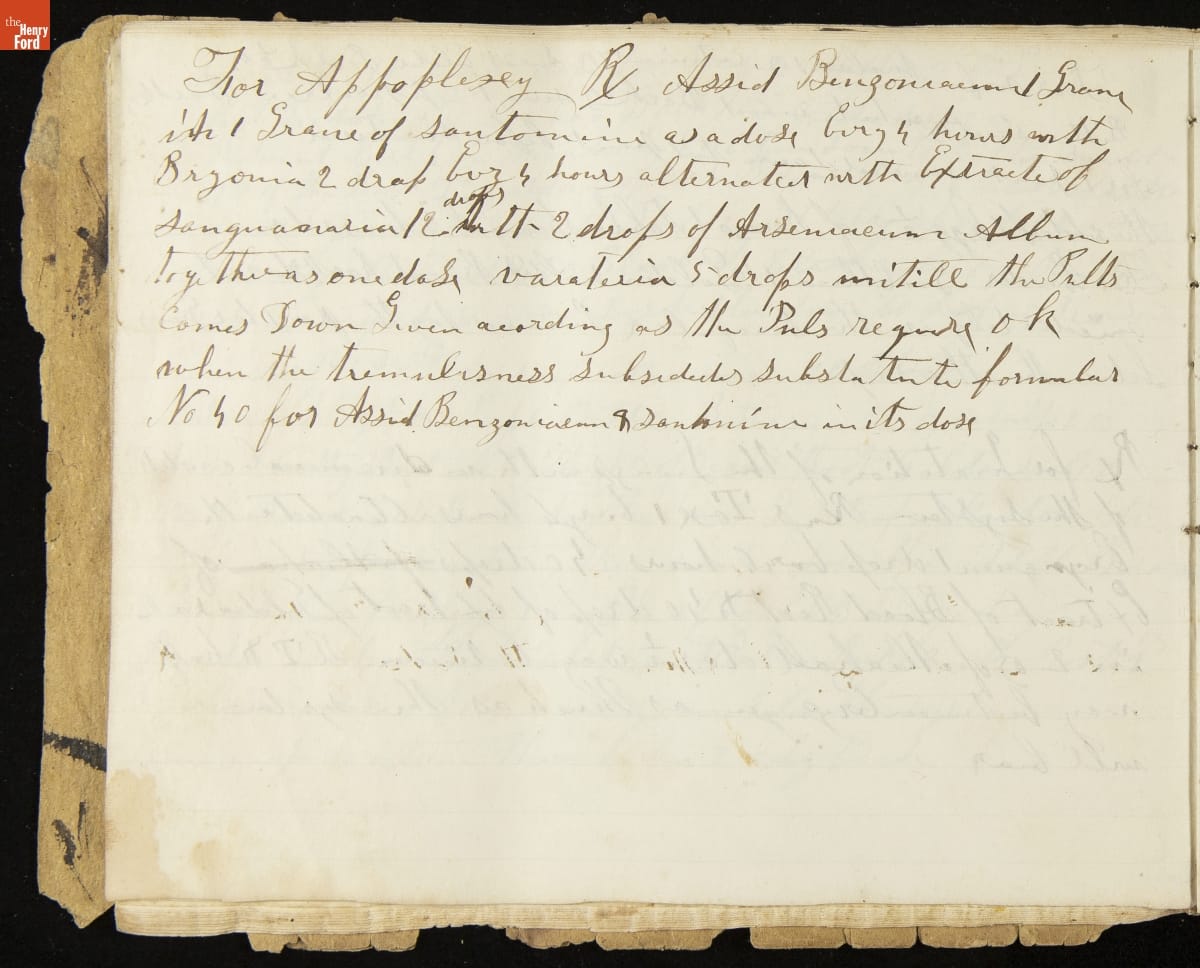 the
Henry
Ford
For Appoplexey Rx Assid Benzoniacum 1 Grane
ith 1 Grane of santonine as a dose Evry 4 hours with
Bryonia 2 drop Evry 4 hours alternated with Extracte of
drops
sanguanaria 12 with 2 drops of Arseniacum Album
together as one dose varateria 5 drops untill the Pulls
Comes Down Given acording as the Puls requre OK
when the tremulisness subsideds substatute formular
No 40 for Assid Benzoniacum & santonine in its dose